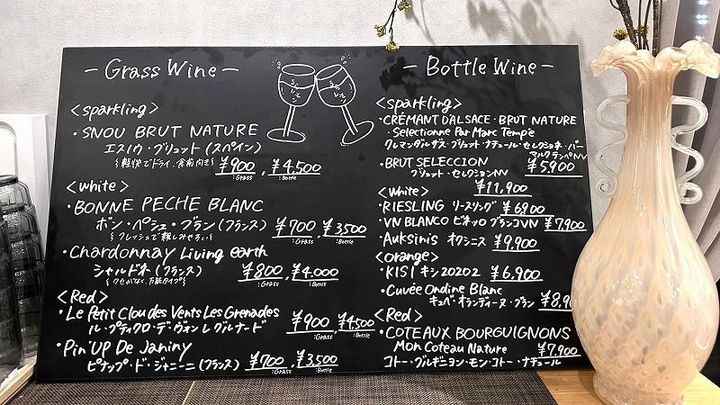 - Grass Wine -
<sparkling>
・SNOU BRUT NATURE
エスノウ・ブリュット(スペイン)
{軽快でドライ.食前向き}
¥900 ¥4,500
:Grass :Bottle
<white>
・BONNE PECHE BLANC
ボン・ペシェ・ブラン(フランス)
{フレッシュで親しみやすい}
¥700 ¥3,500
:Grass :Bottle
・Chardonnay Living earth
シャルドネ(フランス)
{クセがなく、万能タイプ}
¥800 ¥4,000
:Grass :Bottle
<Red>
・Le Petit Clou des Vents Les Grenades
ル・プティクロ・デ・ヴォン レ グルナード
¥900 ¥4,500
:Grass :Bottle
・Pin'UP De Janiny
ピナップ・ド・ジャニーニ(フランス)
¥700 ¥3,500
:Grass :Bottle
- Bottle Wine -
<sparkling>
・CRÉMANT D'ALSACE・BRUT NATURE
・Selectionne Par Marc Tempé
クレマンダルザス・ブリュット・ナチュール・セレクショネ・パー
マルクテンペNV
¥5,900
・BRUT SELECCION
ブリュット・セレクションNV
¥11,900
<White>
・RIESLING リースリング ¥6,900
・VN BLANCO ビネッロ ブランコVN ¥7,900
・Auksinis オクシニス ¥9,900
<orange>
・KISI キシ2020 2 ¥6,900
・Cuvée Ondine Blanc
キュベ・オランディーヌ・ブラン ¥8,90
<Red>
・COTEAUX BOURGUIGNONS
Mon Coteau Nature ¥7,900
コトー・ブルギニヨン・モン・コトー・ナチュール